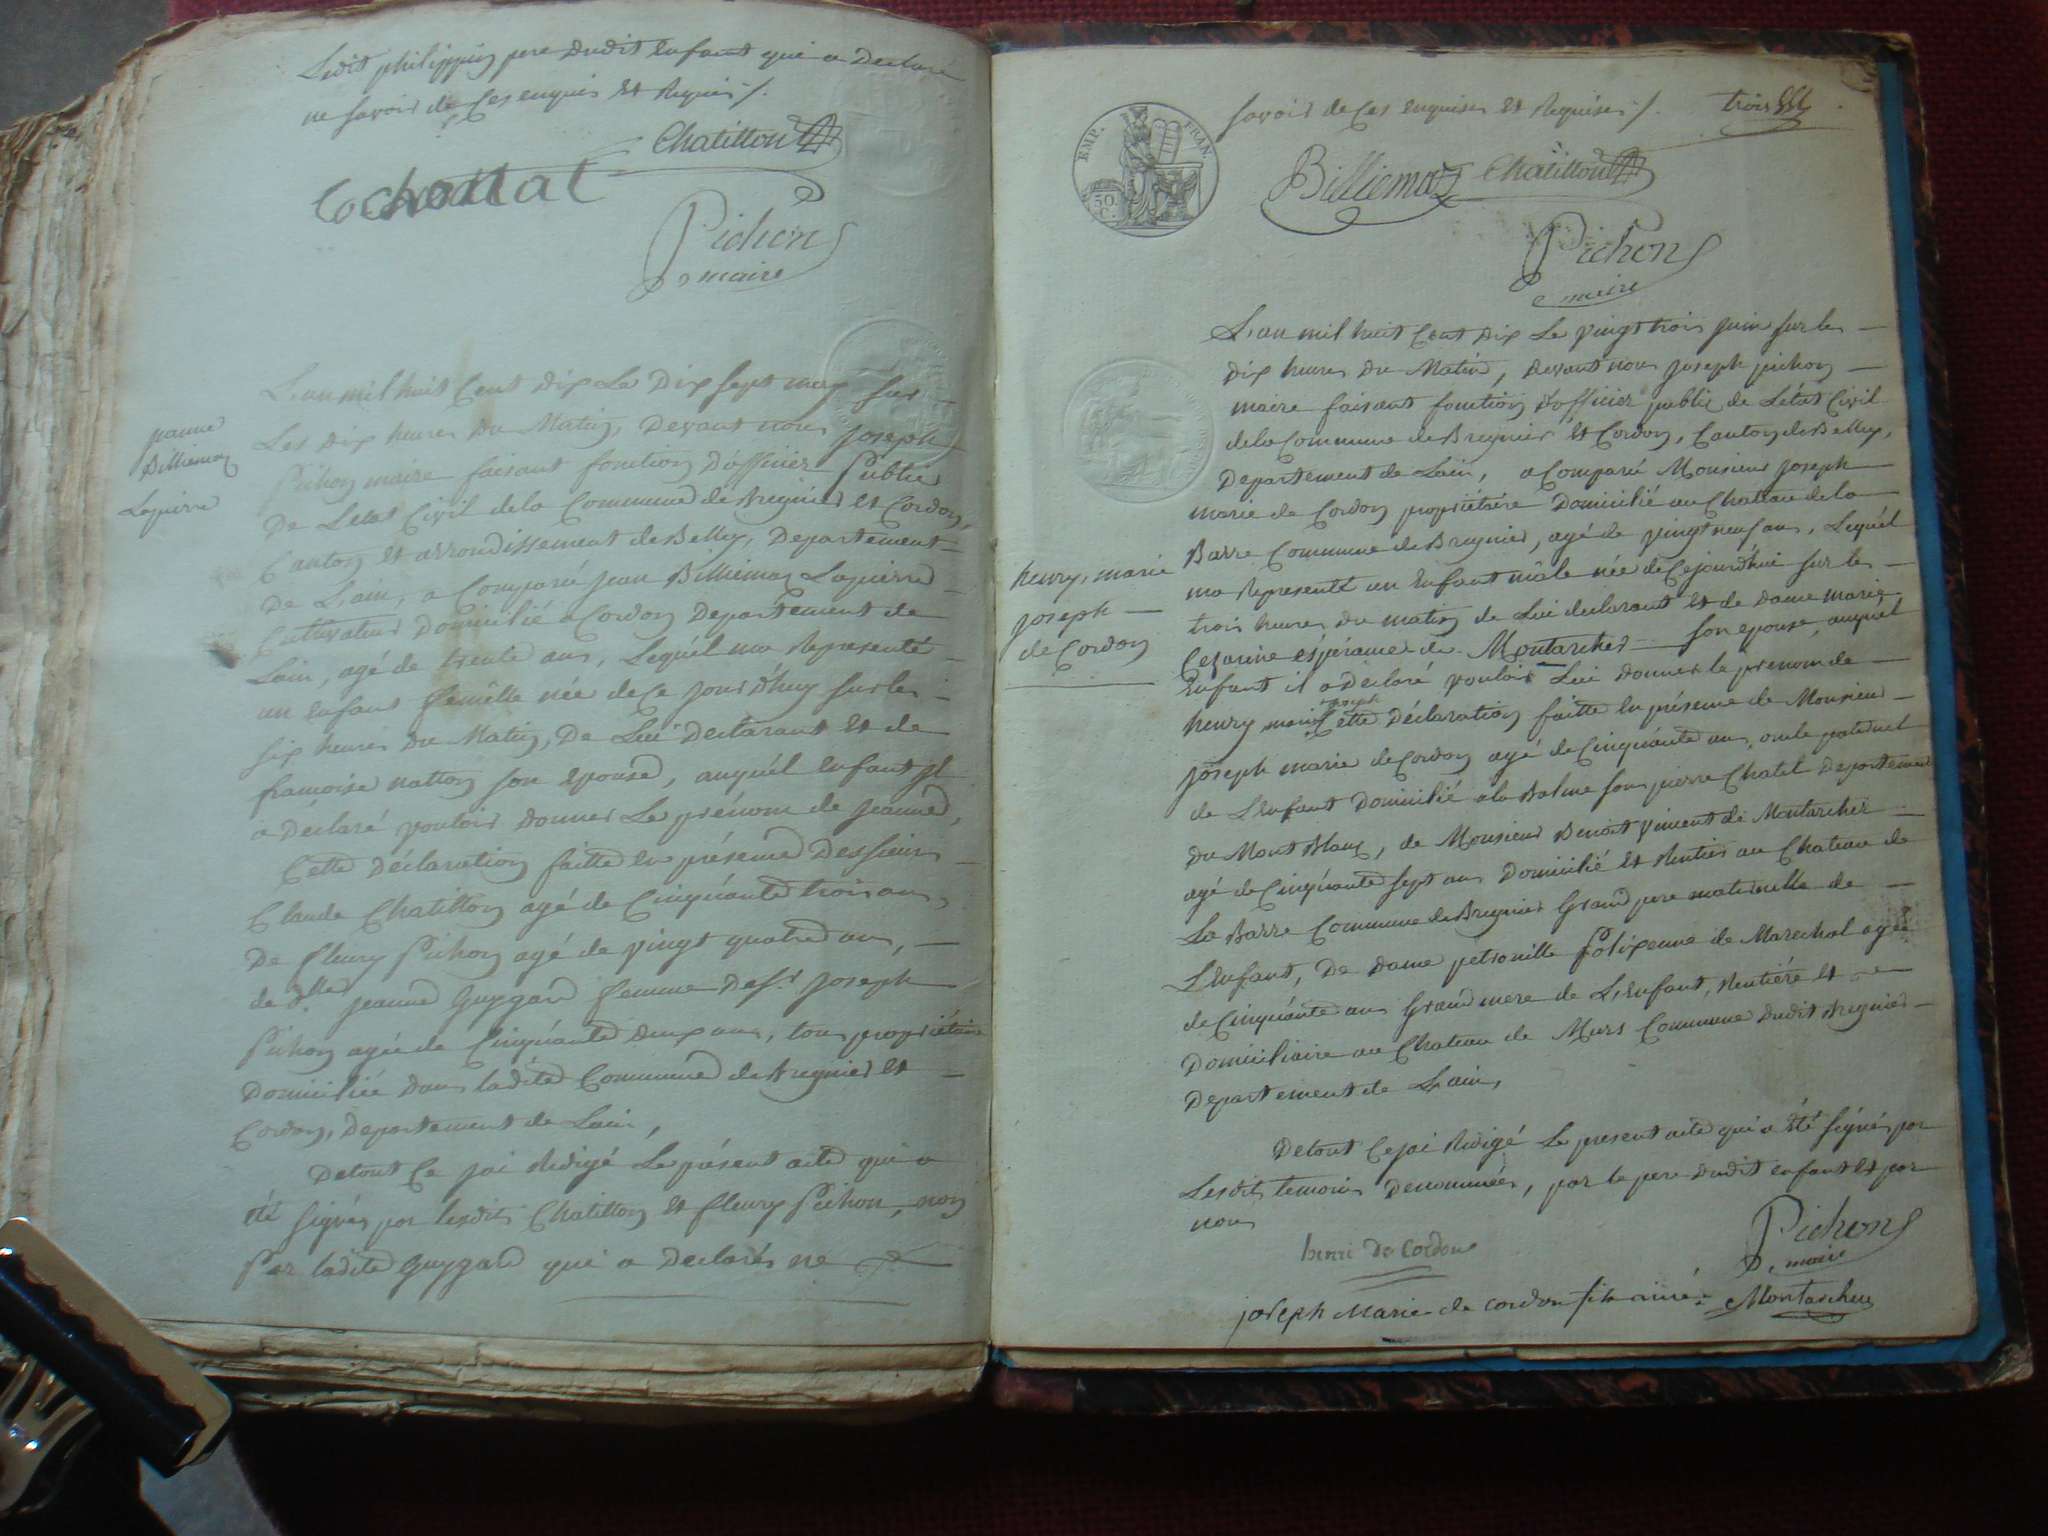 Ledit philippin pere dudit Enfant qui a Declaré
ne savoir de Ces enquis Et Requis /.
Chatillon
Cochonat
Pichon
maire
jeanne
Billiemaz
Lapierre
L'an mil huit Cent dix Le Dix sept may sur
Les dix heures du Matin, Devant nous Joseph
Pichon maire faisant fonction d'officier Public
De L'etat Civil de la Commune de Bregnier Et Cordon,
Canton Et arrondissement de Belley, Departement
De L'ain, a Comparu Jean Billiemaz Lapierre
Cultivateur Domicilié a Cordon Departement de
Lain, agé de trente ans, Lequel ma Representé
un Enfant femelle née de Ce jourd'huy sur les
six heures du Matin, De Lui Declarant Et de
francoise natton son Epouse, auquel Enfant Jl
a Déclaré vouloir donner Le prénom de jeanne,
Cette Déclaration faitte En présence Des sieurs
Claude Chatillon agé de Cinquante trois ans,
De fleury Pichon agé de vingt quatre ans,
de dlle jeanne Guygard femme du sr joseph
Pichon agée de Cinquante deux ans, tous propriétaire
Domiciliée dans ladite Commune de Bregnier Et
Cordon, Departement de Lain,
De tout Ce jai Redigé Le présent acte qui a
été signés par lesdits Chatillon Et fleury Pichon, non
Par ladite Guygard qui a Declarés ne
EMP. FRAN.
50. C.
savoir de Ces Enquises Et Requises /. trois
Billiemaz Chatillon
Pichon
maire
henry, marie
joseph
de Cordon
L'an mil huit Cent dix Le vingt trois juin sur les
dix heures du Matin, devant nous joseph pichon
maire faisant fonction d'officier public de L'état Civil
de la Commune de Bregnier Et Cordon, Canton de Belley,
Departement de Lain, a Comparu Monsieur joseph
marie de Cordon propriétaire Domicilié au Chateau de la
Barre Commune de Bregnier, agé de vingt neuf ans, Lequel
ma Representé un Enfant mâle née de Cejourd'hui sur les
trois heures du matin de Lui declarant et de Dame marie
Cezarine éspérance de Montarcher son épouse, auquel
Enfant il a Déclaré vouloir Lui donner le prénom de
henry marie joseph Cette Déclaration faitte En présence de Monsieur
joseph marie de Cordon agé de Cinquante ans, oncle paternel
de L'Enfant Domicilié a la Balme sous pierre Chatel Departement
du Mont Blanc, de Monsieur Benoit vincent de Montarcher
agé de Cinquante sept ans Domicilié Et Rentier au Chateau de
La Barre Commune de Bregnier Grand pere maternelle de
L'Enfant, De dame petronille Polixenne de Marechal agée
de Cinquante ans Grand mere de L'Enfant, Rentiére Et
Domiciliaire au Chateau de Murs Commune dudit Bregnier
Departement de Lain,
De tout Ce jai Redigé Le present acte qui a été signés par
Lesdits temoins Denommées, par le pere dudit enfant Et par
nous
Pichon
maire
henri de Cordon
joseph Marie de cordon fils ainé Montarcher